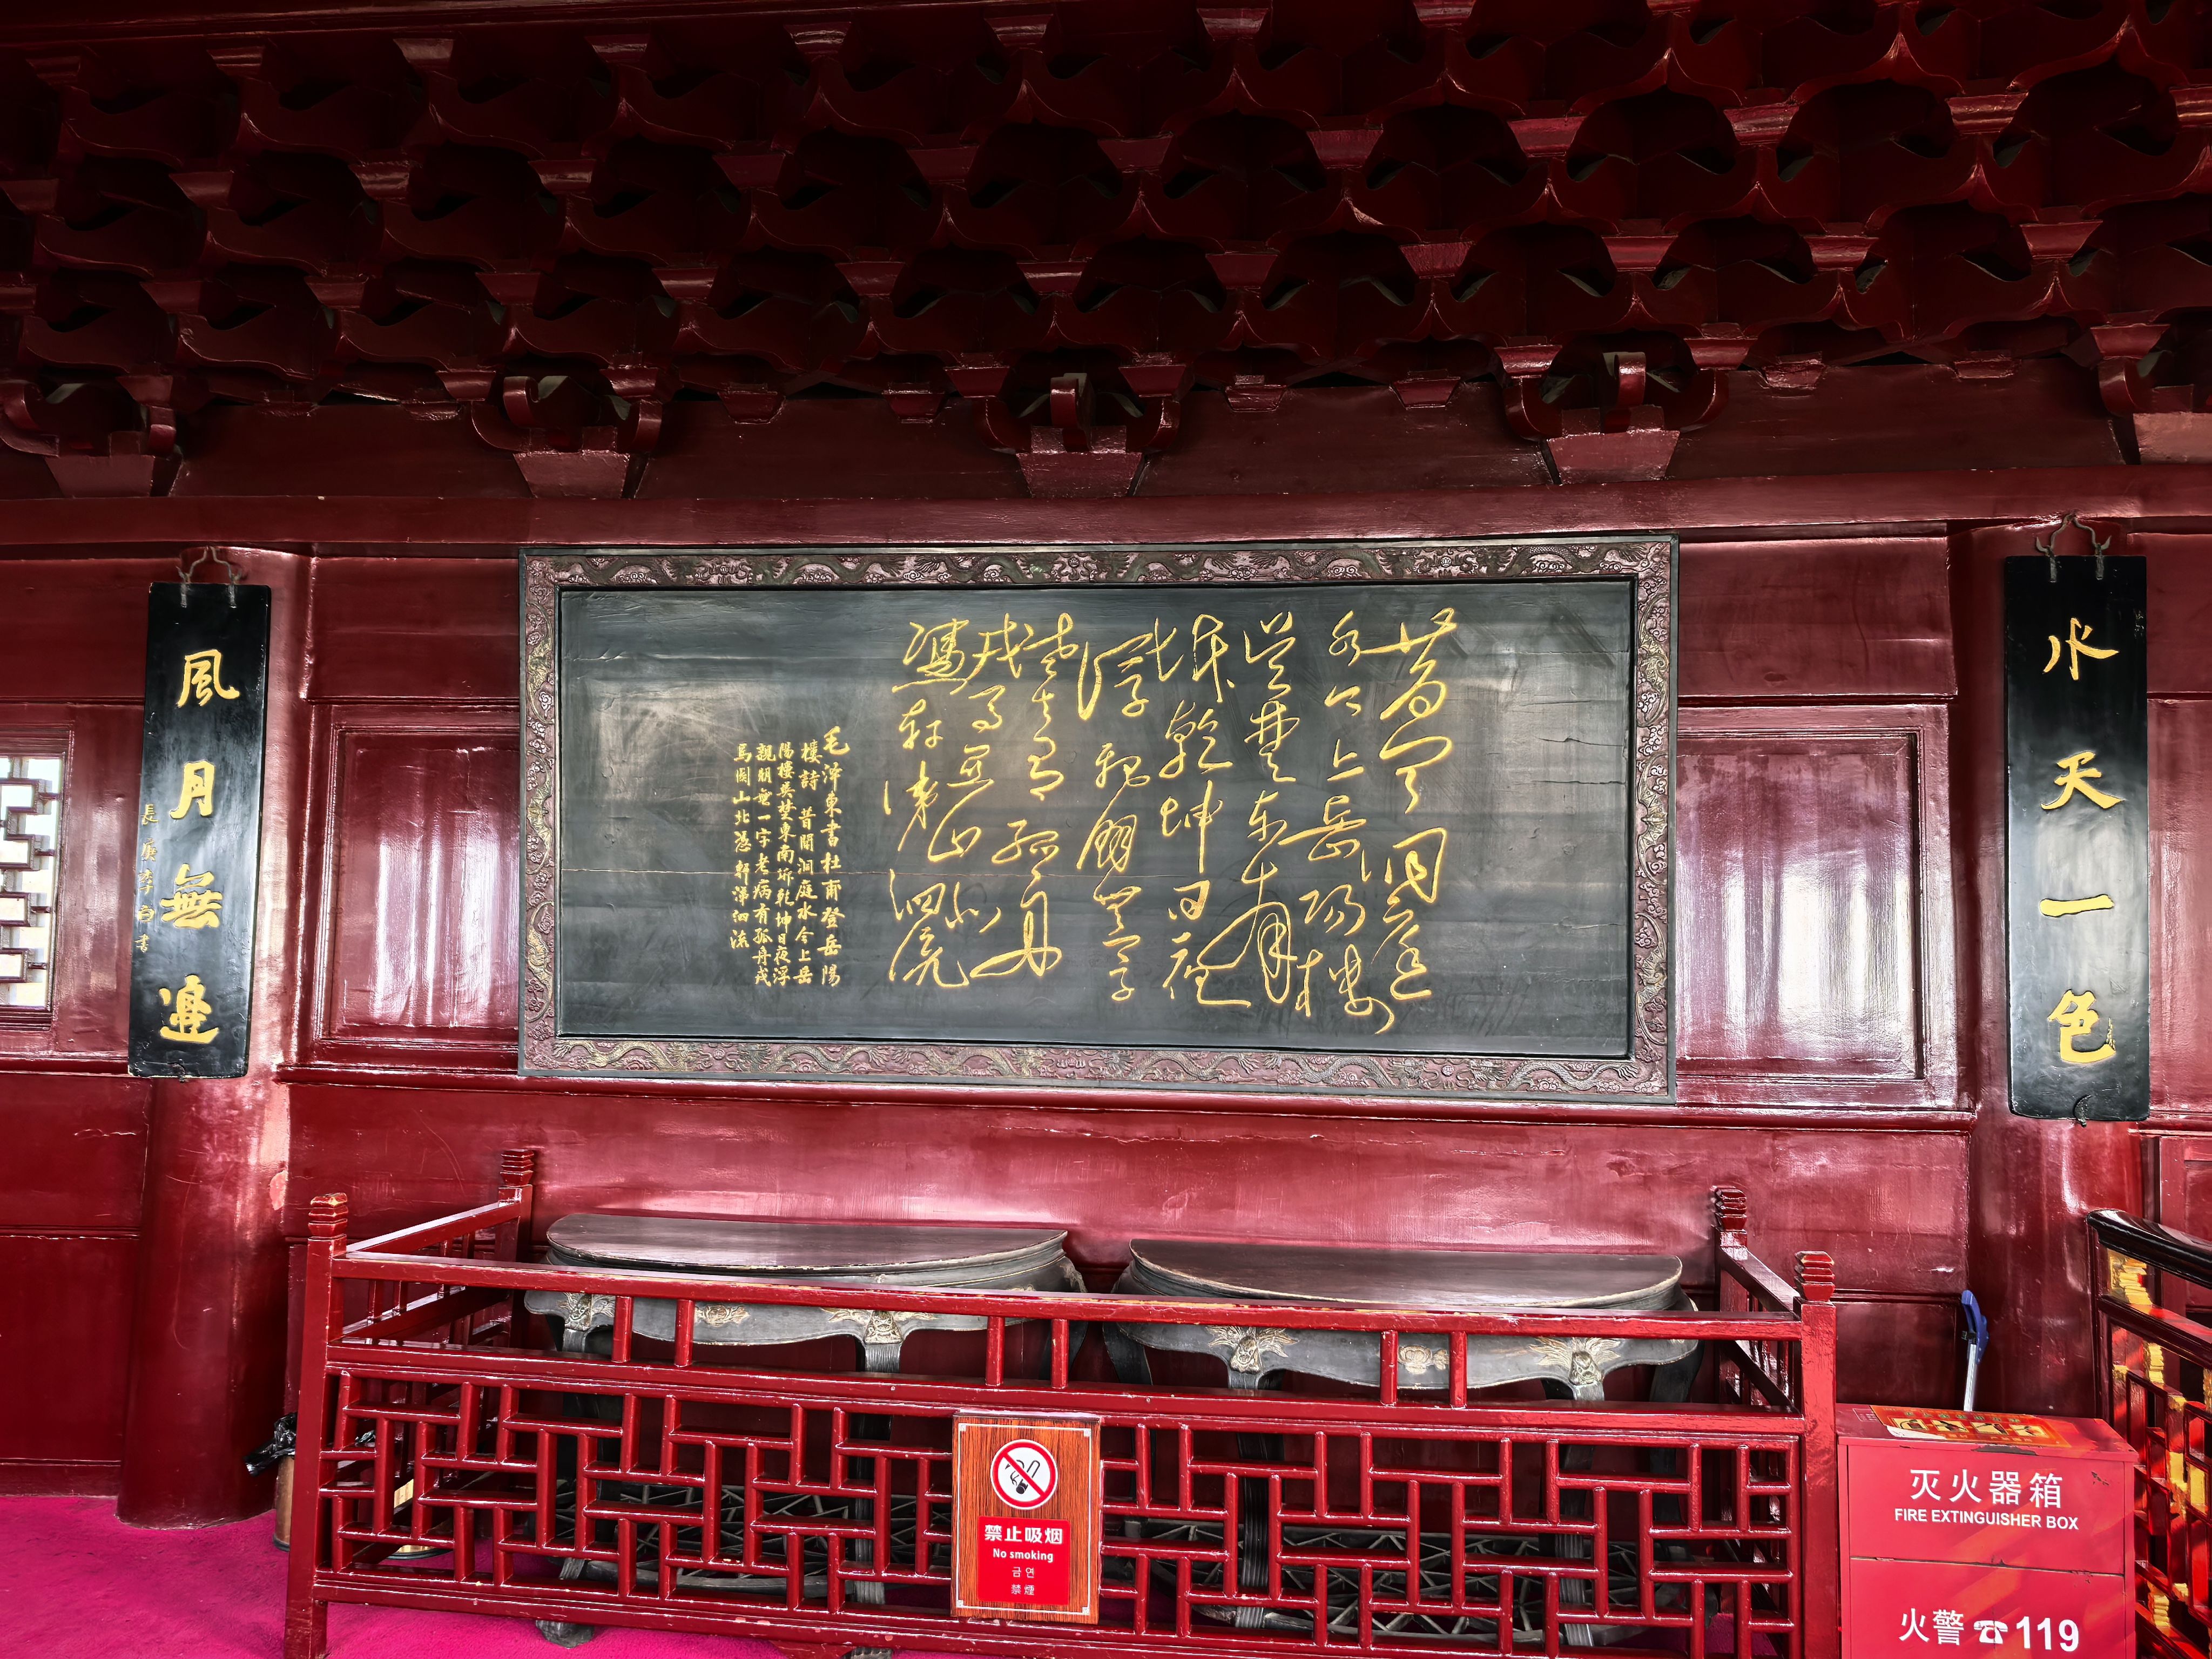 水天一色
昔聞洞庭
水今上岳陽樓
吳楚東南
坼乾坤日夜
浮親朋無一字
老去有孤舟
戎馬關山北
憑軒涕泗流
毛澤東書杜甫登岳陽
樓詩 昔聞洞庭水今上岳
陽樓吳楚東南坼乾坤日夜浮
親朋無一字老病有孤舟戎
馬關山北憑軒涕泗流
風月無邊
長庚李白書
禁止吸烟
No smoking
금연
禁煙
灭火器箱
FIRE EXTINGUISHER BOX
火警☎119